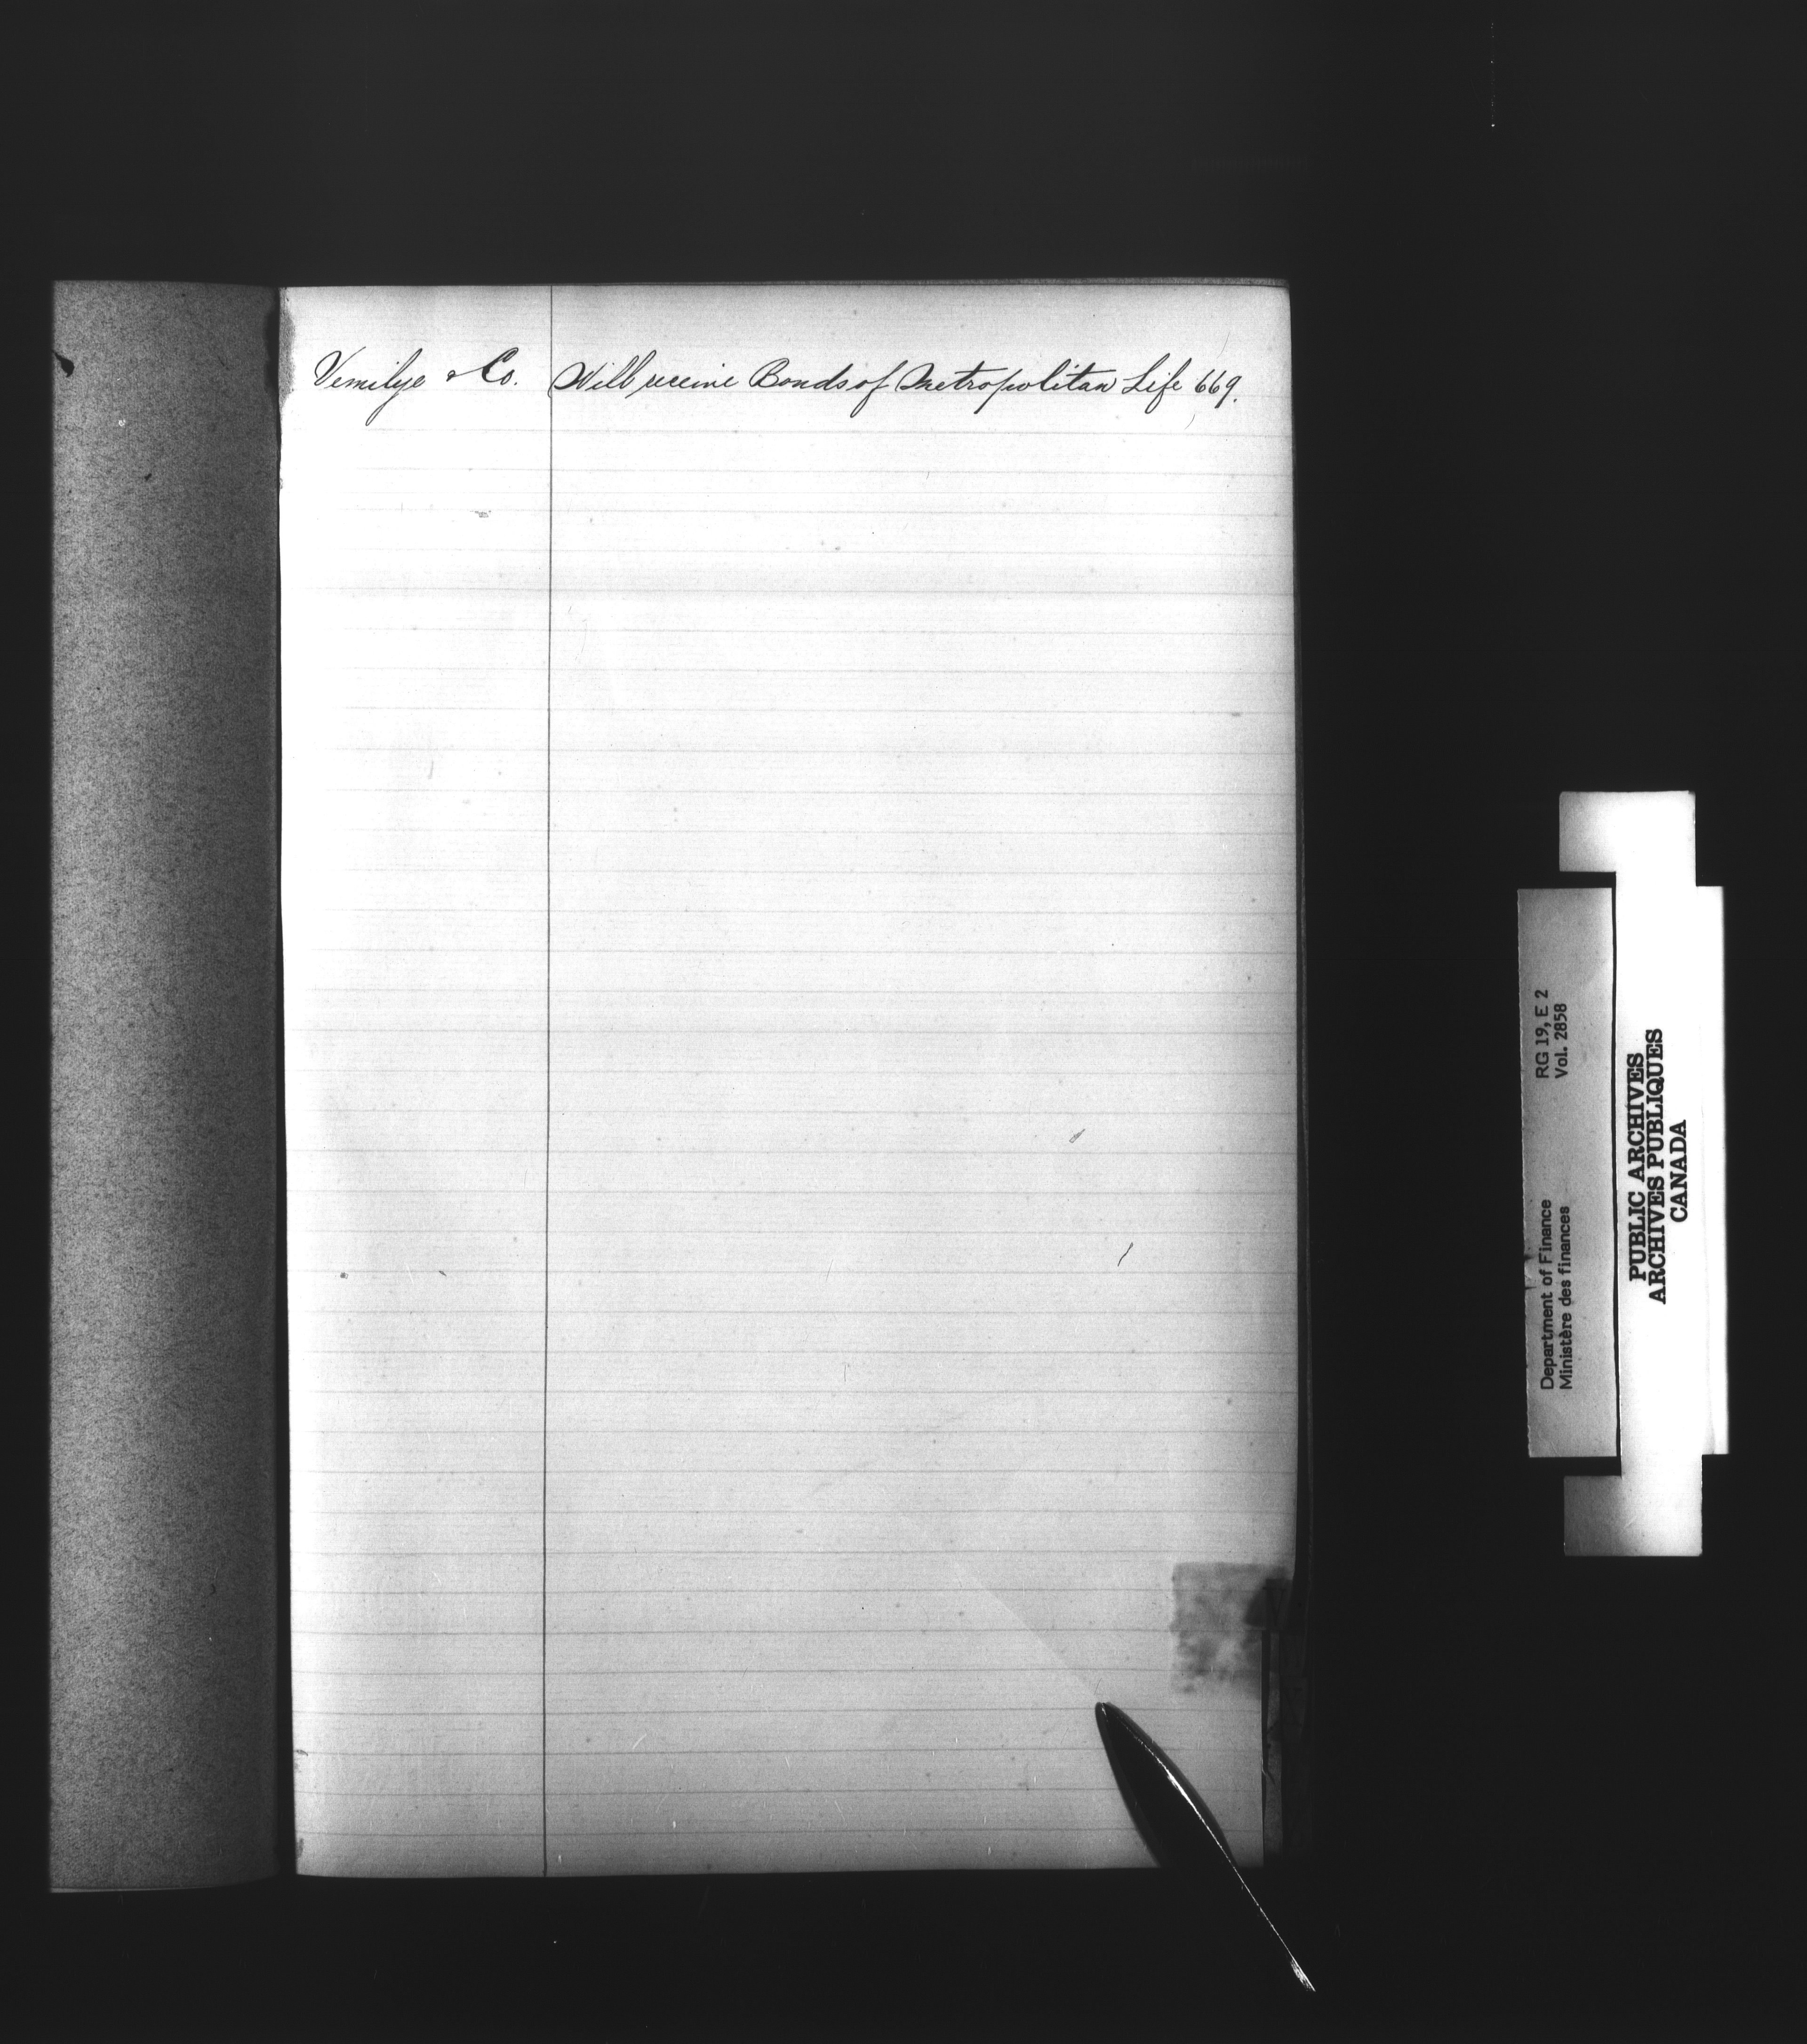 Vemilye & Co. Will receive Bonds of Metropolitan Life 669.
Department of Finance RG 19, E 2
Ministère des finances Vol. 2858
PUBLIC ARCHIVES
ARCHIVES PUBLIQUES
CANADA